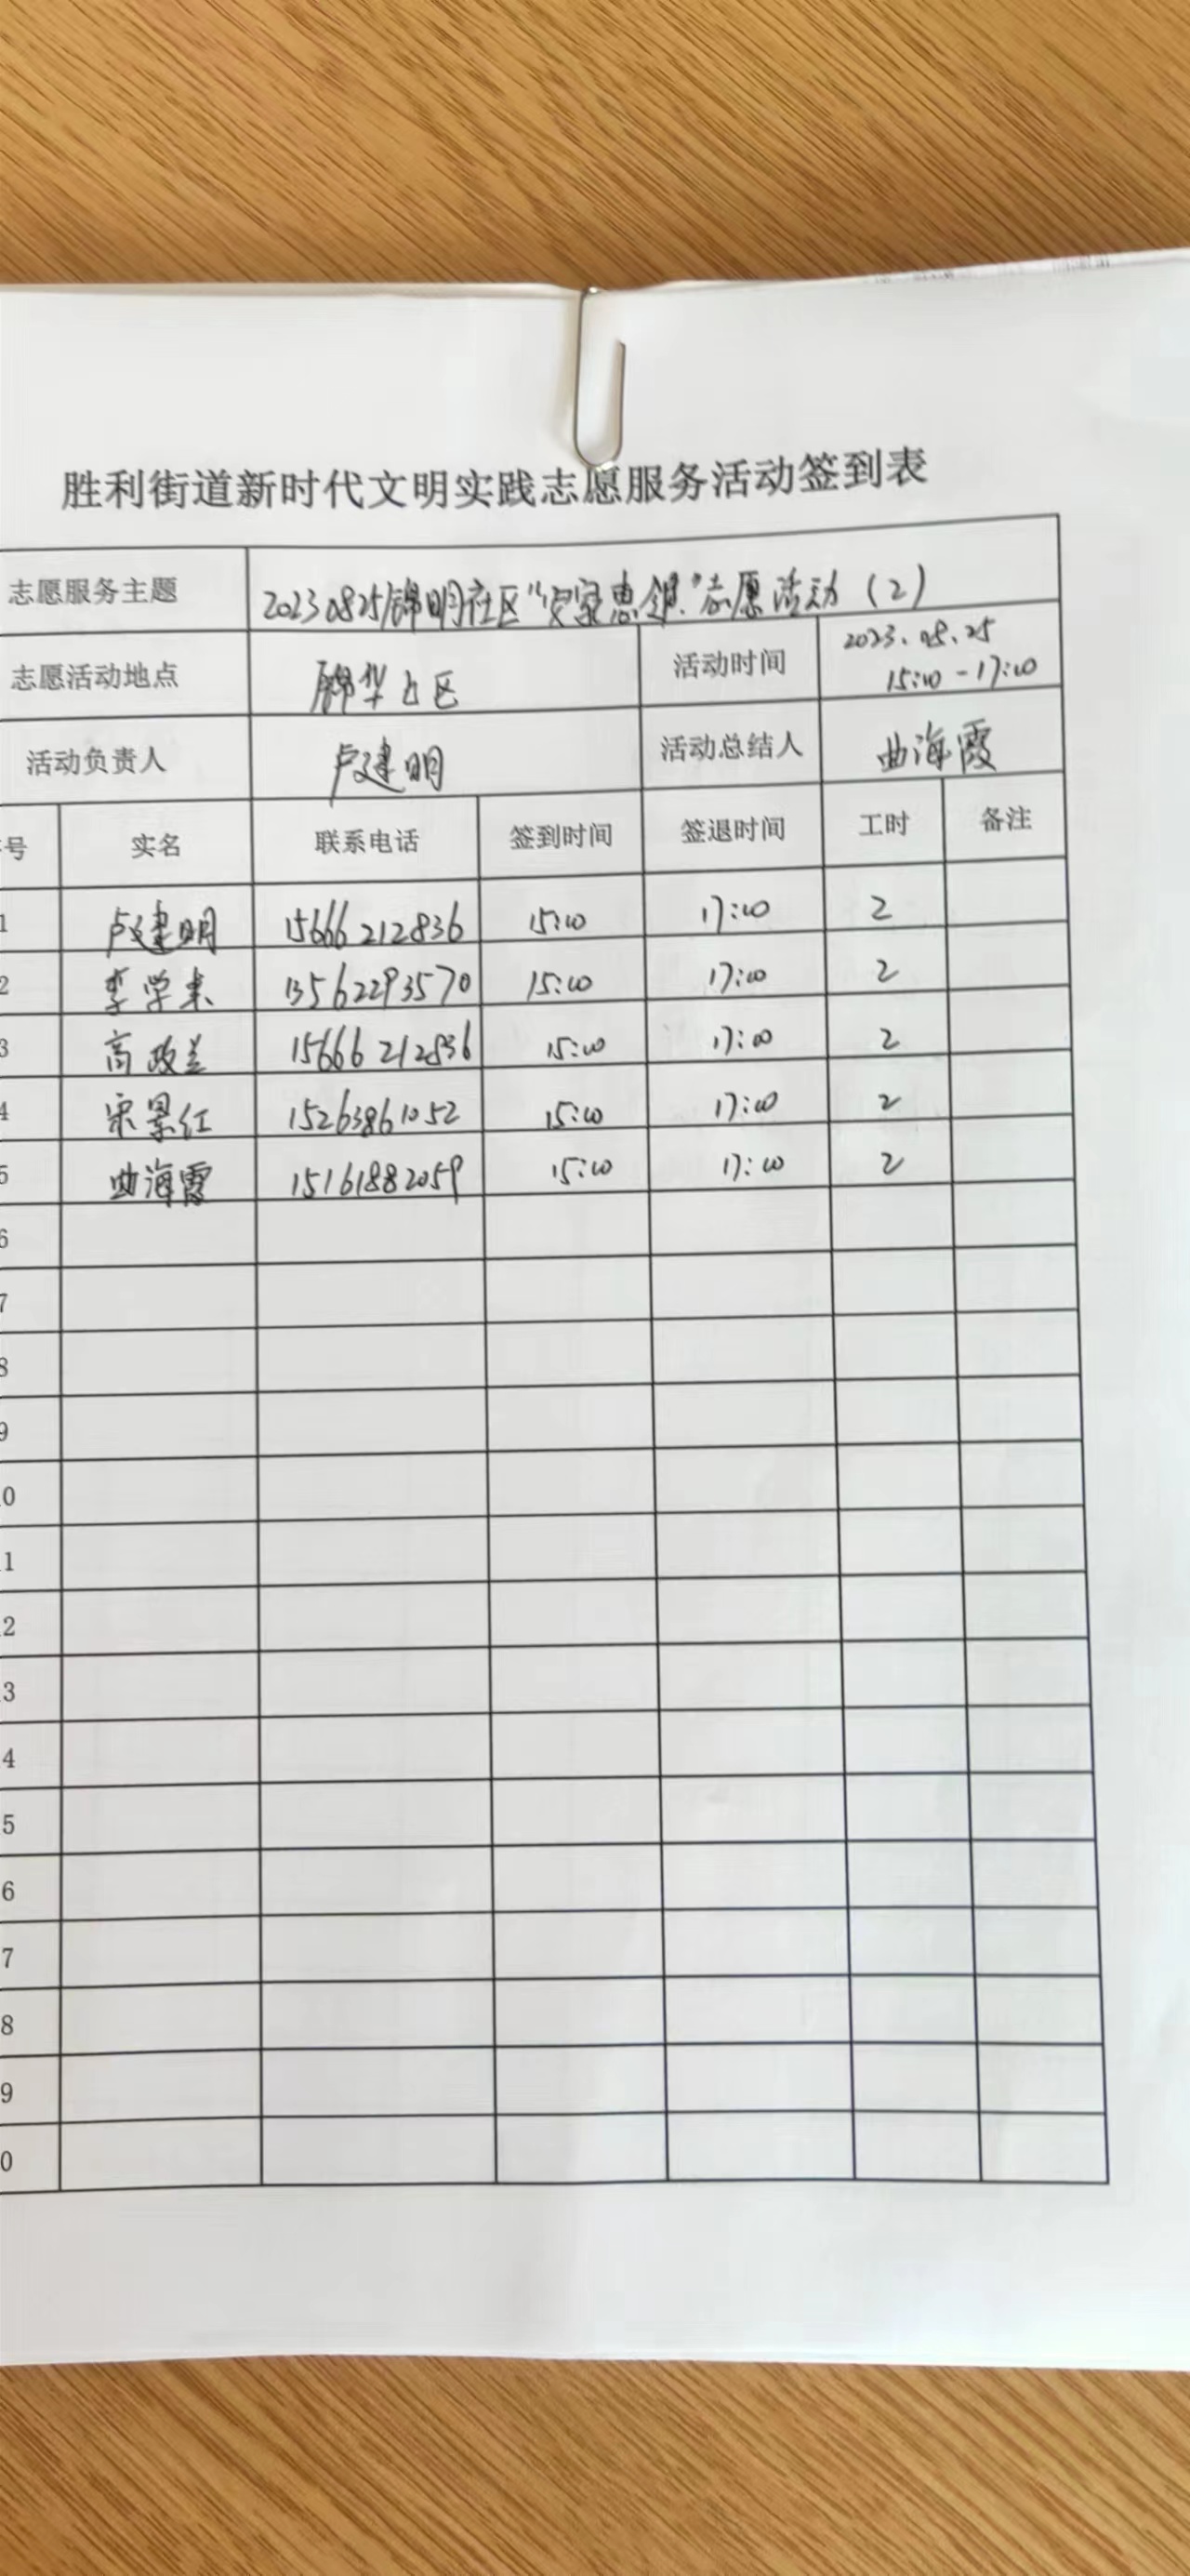 胜利街道新时代文明实践志愿服务活动签到表
志愿服务主题 20230825锦明社区“安家惠邻”志愿活动（2）
志愿活动地点 锦华社区 活动时间 2023.08.25
15:00-17:00
活动负责人 卢建明 活动总结人 曲海霞
号 实名 联系电话 签到时间 签退时间 工时 备注
1 卢建明 15666212836 15:00 17:00 2
2 李学来 13562293570 15:00 17:00 2
3 高政兰 15666212836 15:00 17:00 2
4 宋景红 15263861052 15:00 17:00 2
5 曲海霞 15161882059 15:00 17:00 2
6
7
8
9
0
1
2
3
4
5
6
7
8
9
0